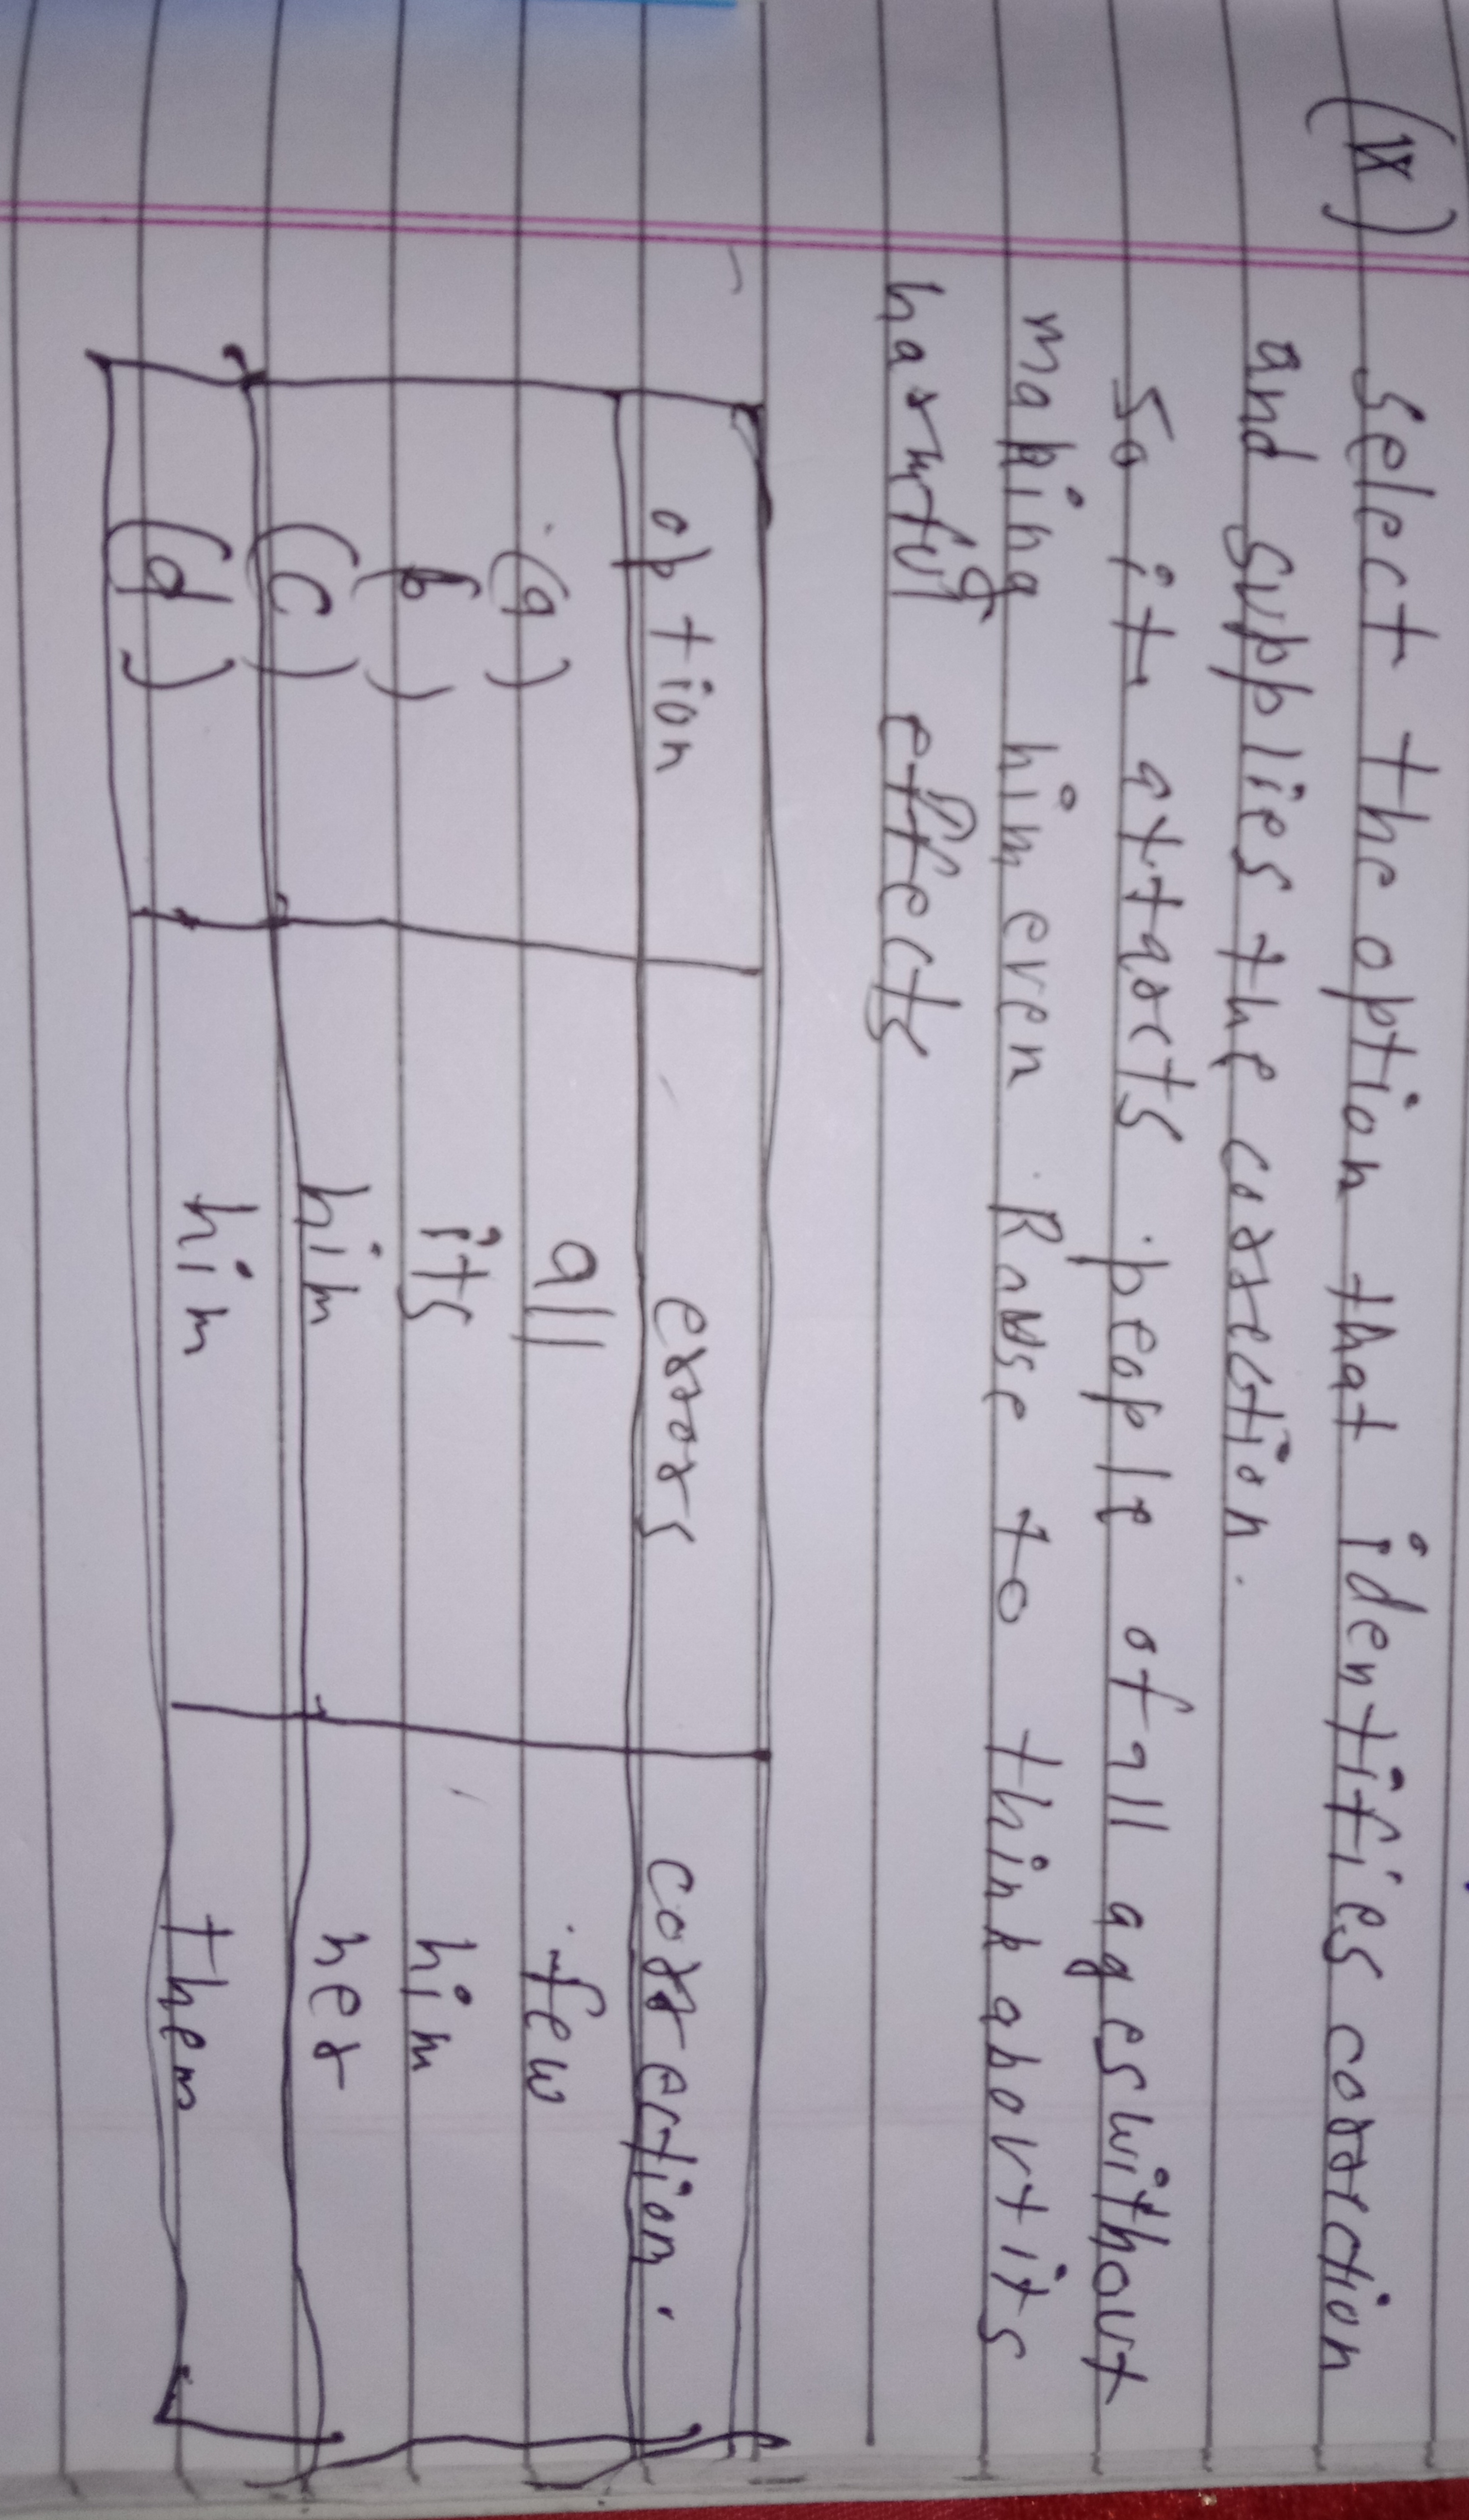 (ix) Select the option that identifies correction
and supplies the correction.
So it attarcts people of all ages without
making him even Rause to think about its
harmful effects
option errors correction.
(a) all few
(b) its him
(c) him her
(d) him them